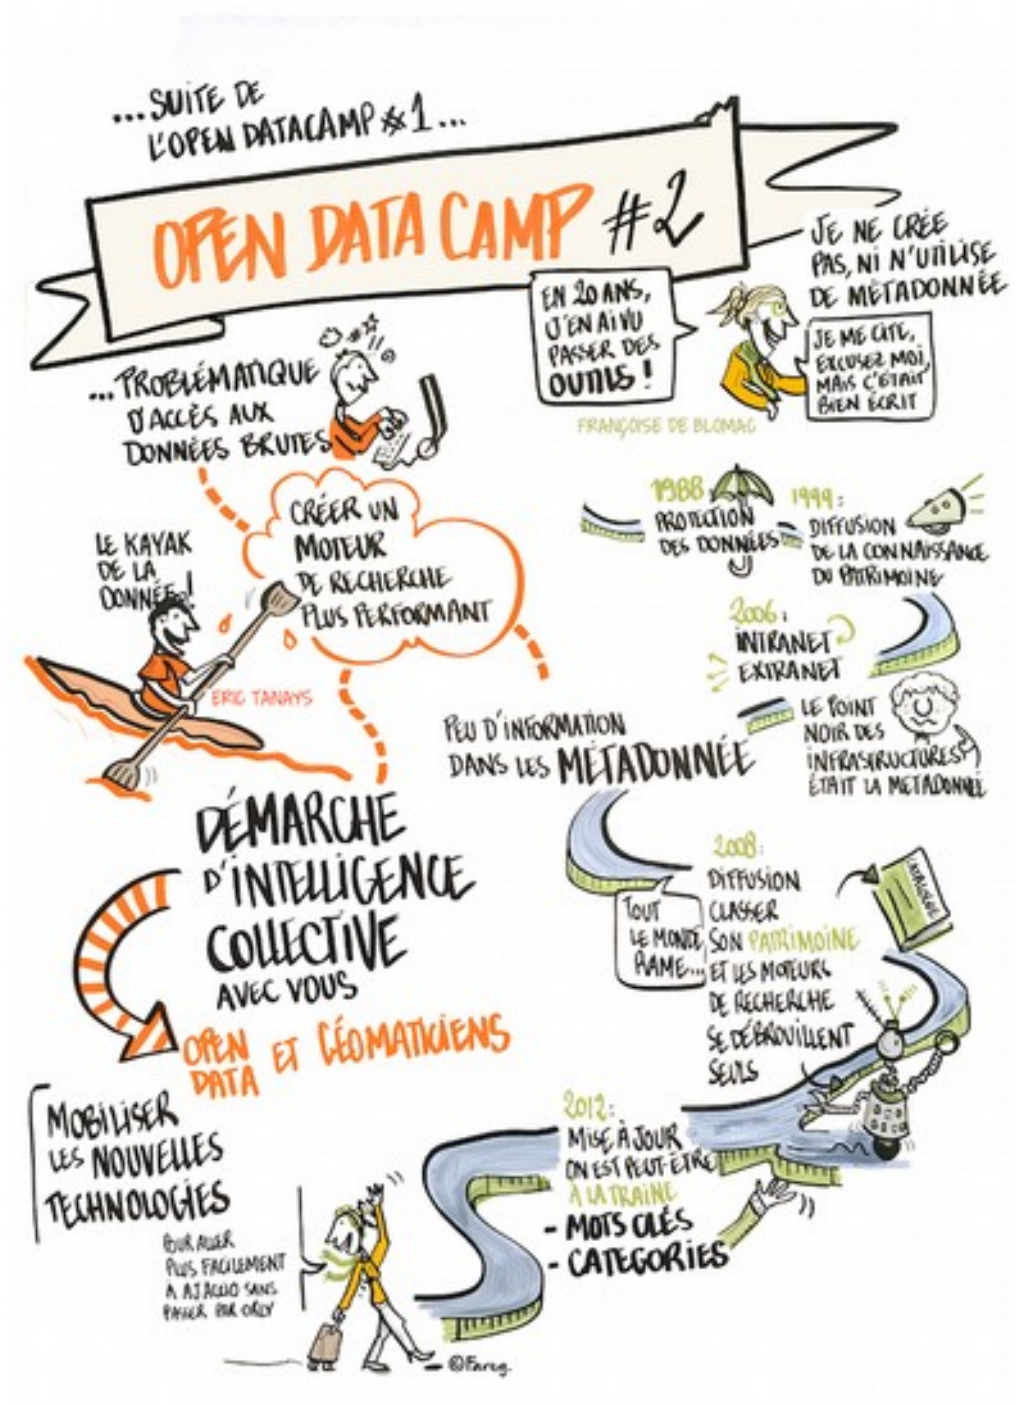 ...SUITE DE
L'OPEN DATACAMP #1...
OPEN DATA CAMP #2
JE NE CRÉE
PAS, NI N'UTILISE
DE MÉTADONNÉE
EN 20 ANS,
J'EN AI VU
PASSER DES
OUTILS !
JE ME CITE,
EXCUSEZ MOI,
MAIS C'ÉTAIT
BIEN ÉCRIT
FRANÇOISE DE BLOMAC
...PROBLÉMATIQUE
D'ACCÈS AUX
DONNÉES BRUTES
CRÉER UN
MOTEUR
DE RECHERCHE
PLUS PERFORMANT
LE KAYAK
DE LA
DONNÉE !
ERIC TANAYS
1988:
PROTECTION
DES DONNÉES
1999:
DIFFUSION
DE LA CONNAISSANCE
DU PATRIMOINE
2006:
INTRANET
EXTRANET
LE POINT
NOIR DES
INFRASTRUCTURES
ÉTAIT LA METADONNÉE
PEU D'INFORMATION
DANS LES MÉTADONNÉE
DÉMARCHE
D'INTELLIGENCE
COLLECTIVE
AVEC VOUS
OPEN
DATA ET GÉOMATICIENS
2008:
DIFFUSION
CLASSER
SON PATRIMOINE
ET LES MOTEURS
DE RECHERCHE
SE DÉBROUILLENT
SEULS
CATALOGUE
TOUT
LE MONDE
RAME...
MOBILISER
LES NOUVELLES
TECHNOLOGIES
POUR ALLER
PLUS FACILEMENT
À AJACCIO SANS
PASSER PAR ORLY
2012:
MISE À JOUR
ON EST PEUT-ÊTRE
À LA TRAINE
- MOTS CLÉS
- CATEGORIES
©Fareg.